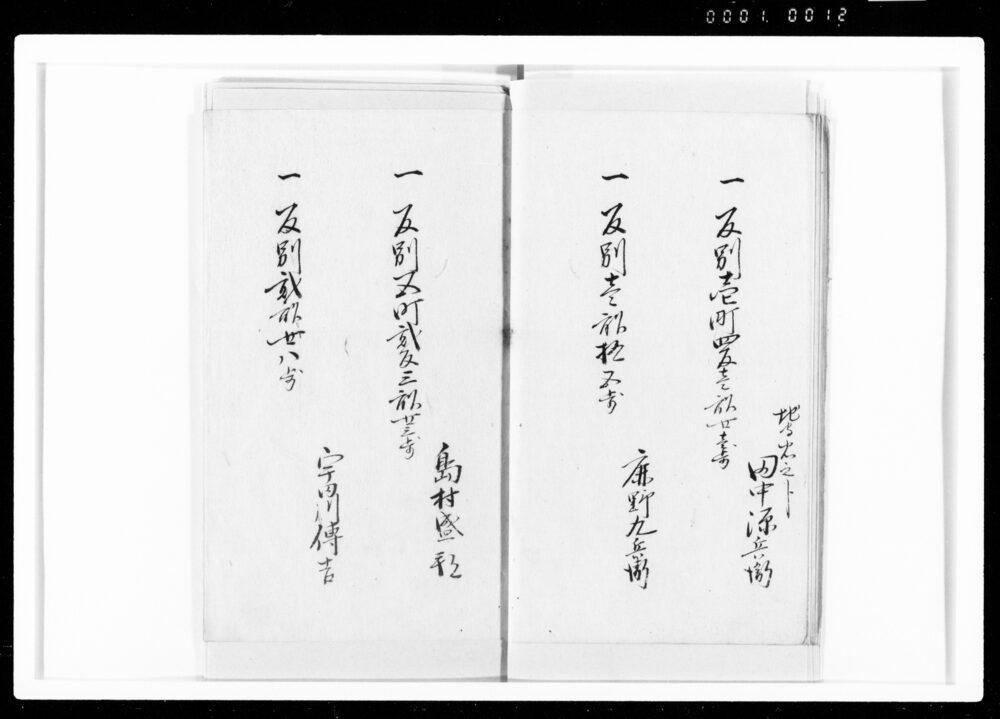 0001.0012
一 反別壱町四反壱畝廿壱歩
田中源兵衛
一 反別壱畝拾五歩
麻野九兵衛
一 反別五町弐反三畝廿三歩
島村盛
一 反別弐畝廿八歩
宇田川傳吉